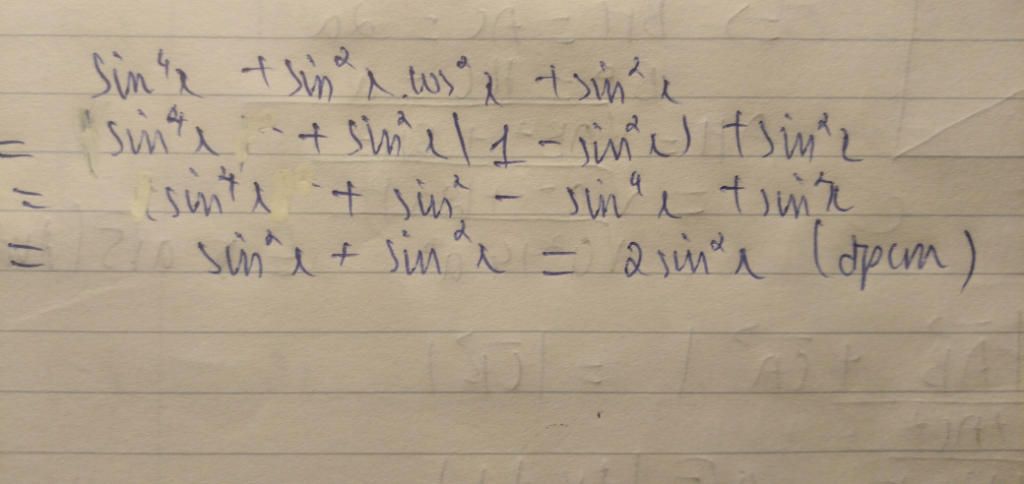 sin⁴x + sin²x.cos²x + sin²x
= sin⁴x + sin²x(1 - sin²x) + sin²x
= (sin⁴x + sin² - sin⁴x + sin²x
= sin²x + sin²x = 2sin²x (đpcm)